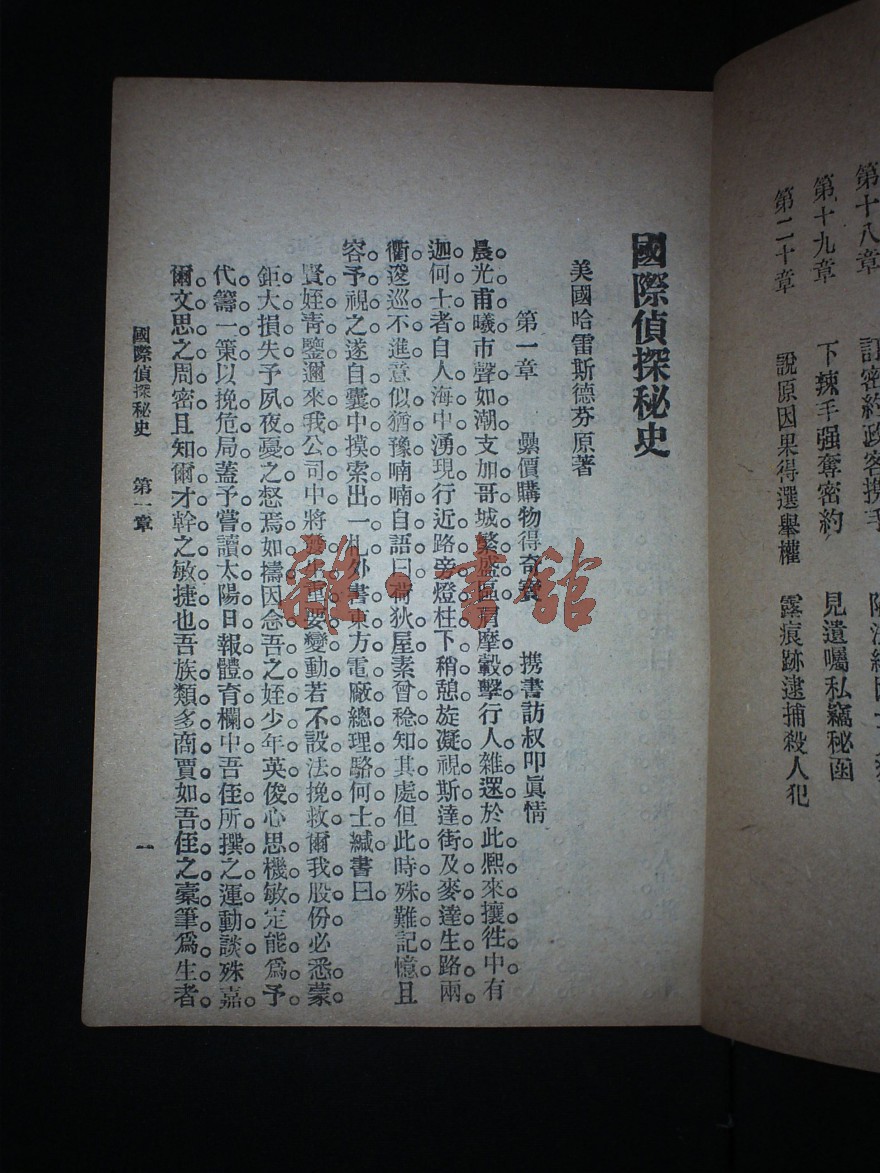 第十八章
第十九章 下辣手强奪密約 見遺囑私竊秘函
第二十章 說原因果得選舉權 露痕跡逮捕殺人犯
國際偵探秘史
美國哈雷斯德芬原著
第一章 鼎價購物得奇寳 携書訪叔叩眞情
晨光甫曦市聲如潮支加哥城繁盛區肩摩轂擊行人雜遝於此熙來攘往中有
迦何士者自人海中湧現行近路旁燈柱下稍憩旋凝視斯達街及麥達生路兩
衢逡巡不進意似猶豫喃喃自語曰荷狄屋素曾稔知其處但此時殊難記憶且
容予視之遂自囊中摸索出一札外書東方電廠總理駱何士緘書曰
賢姪靑鑒邇來我公司中將發生重要變動若不設法挽救爾我股份必悉蒙
鉅大損失予夙夜憂之惄焉如擣因念吾之姪少年英俊心思機敏定能爲予
代籌一策以挽危局蓋予嘗讀太陽日報體育欄中吾侄所撰之運動談殊嘉
爾文思之周密且知爾才幹之敏捷也吾族類多商賈如吾侄之橐筆爲生者
國際偵探秘史 第一章 一
雜·書館